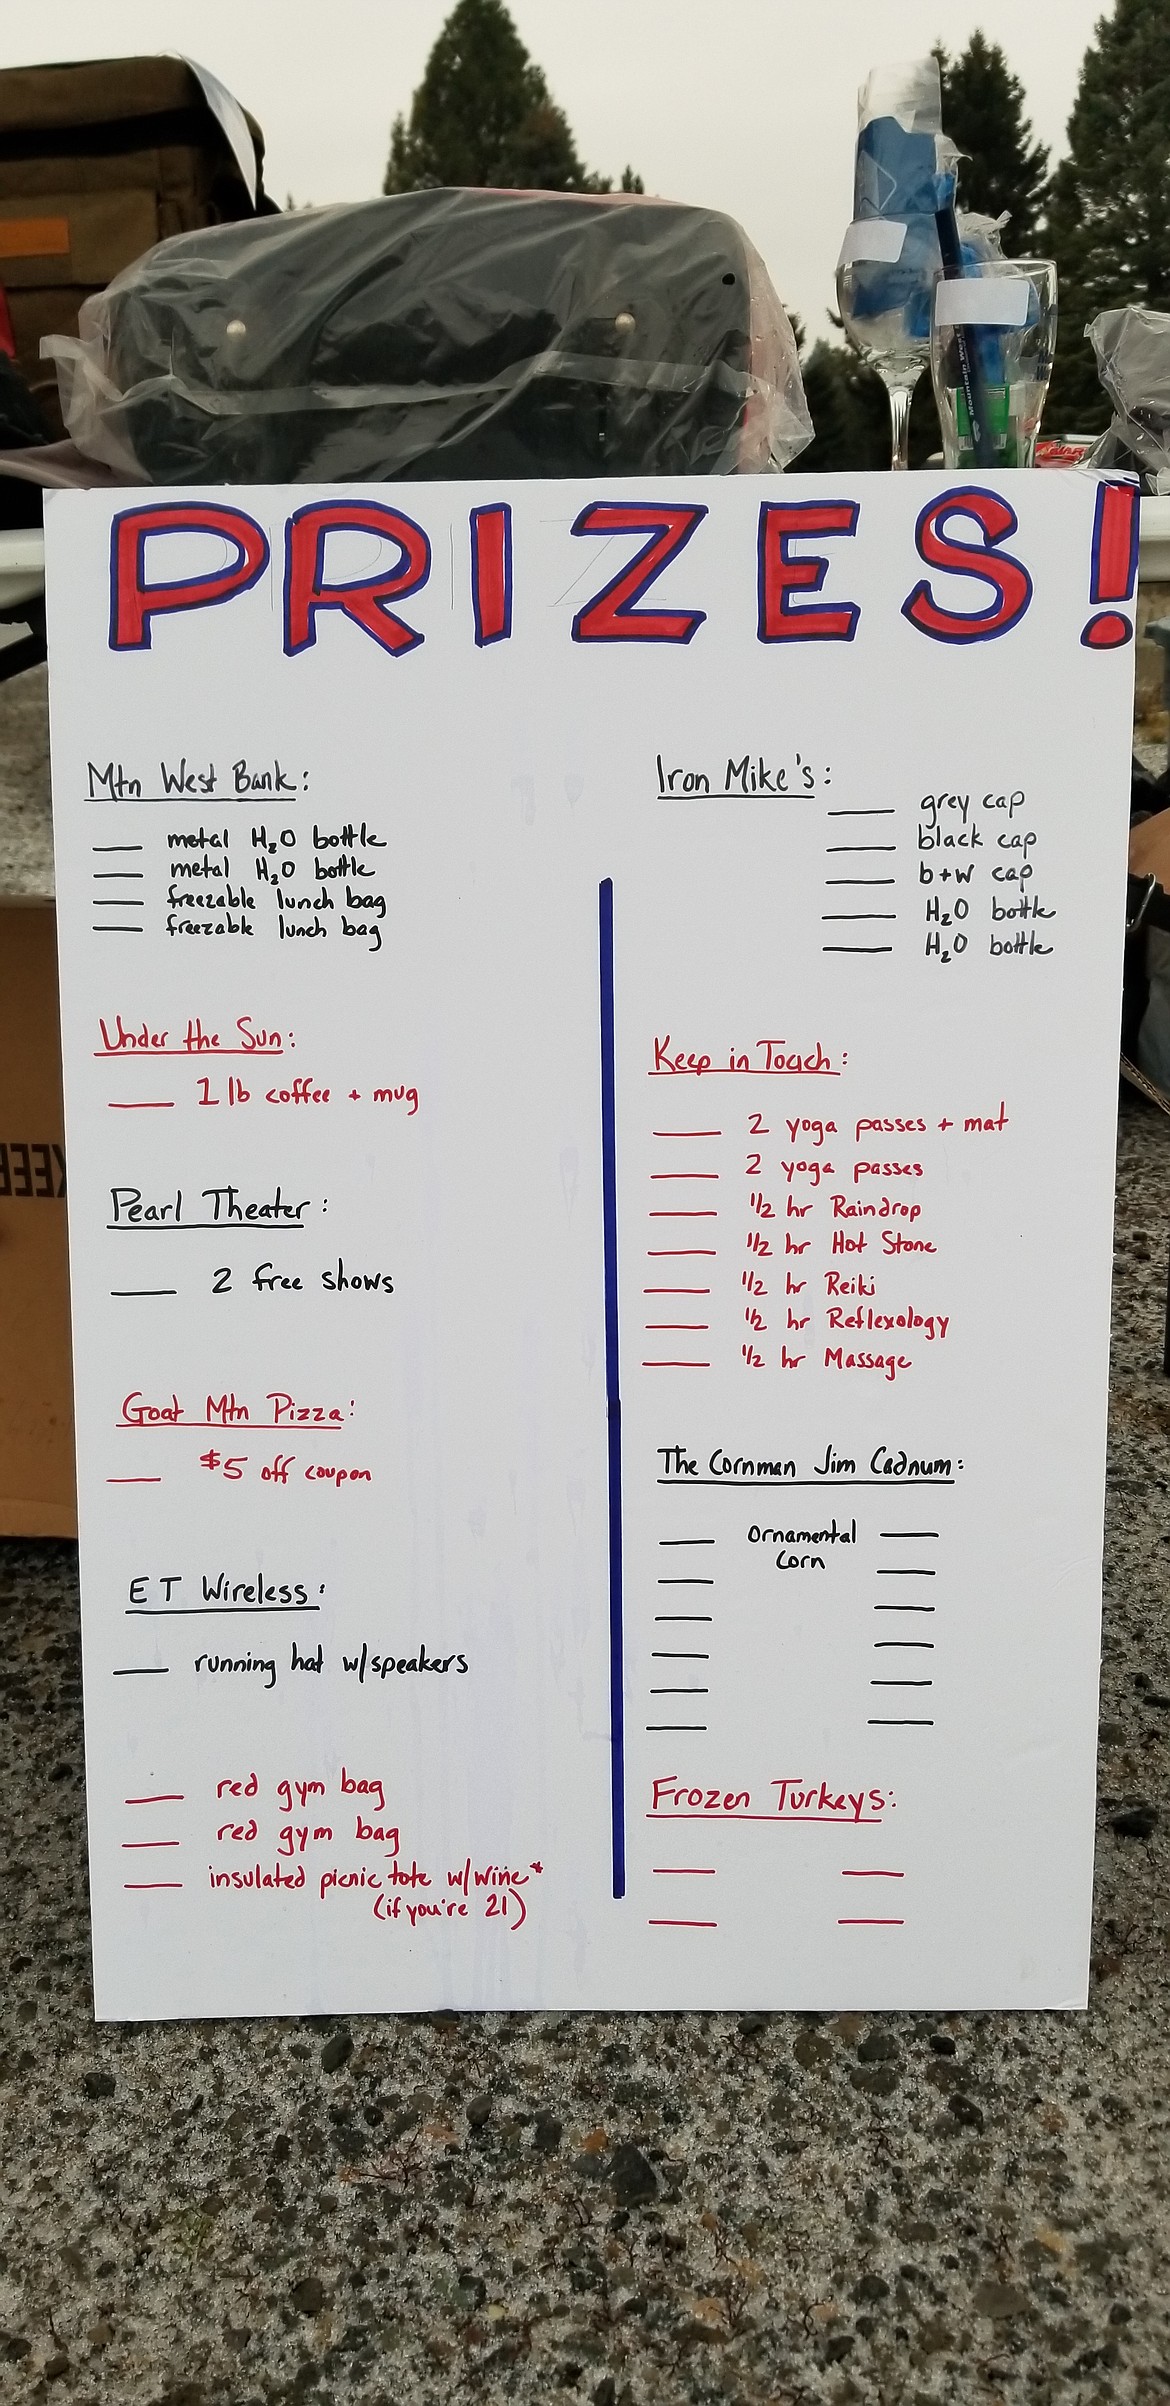 PRIZES!
Mtn West Bank:
metal H₂O bottle
metal H₂O bottle
freezable lunch bag
freezable lunch bag
Under the Sun:
1 lb coffee + mug
Pearl Theater:
2 free shows
Goat Mtn Pizza:
$5 off coupon
E T Wireless:
running hat w/speakers
red gym bag
red gym bag
insulated picnic tote w/wine*
(if you're 21)
Iron Mike's:
grey cap
black cap
b+w cap
H₂O bottle
H₂O bottle
Keep in Touch:
2 yoga passes + mat
2 yoga passes
1/2 hr Raindrop
1/2 hr Hot Stone
1/2 hr Reiki
1/2 hr Reflexology
1/2 hr Massage
The Cornman Jim Cadnum:
Ornamental
Corn
Frozen Turkeys:
Mountain West